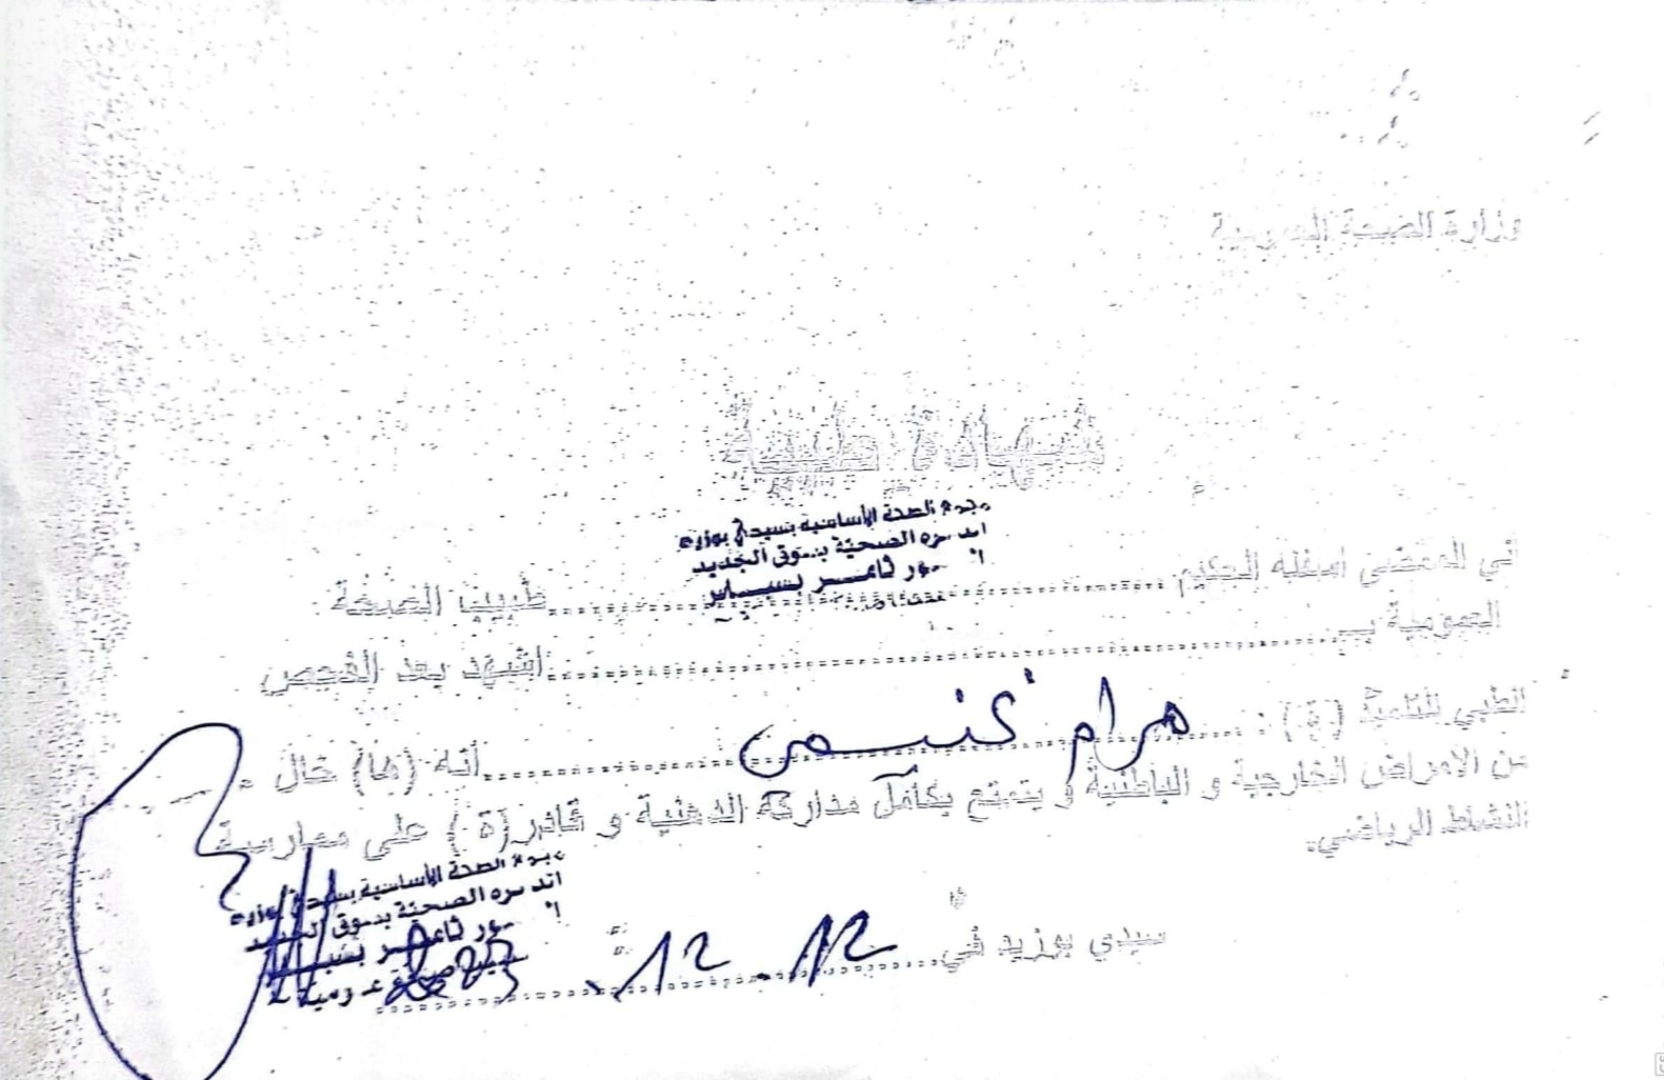 وزارة الصحة العمومية
شهادة طبية
مجمع الصحة الأساسية بسيدي بوزيد
الصحية بسوق الجديد
ثامر بسباير
اني الممضي اسفله الحكيم ........ طبيب الصحة
العمومية بـ ........ اشهد بعد الفحص
الطبي للتلميذ (ة) : مرام ........ أنه (ها) خال
من الامراض الخارجية و الباطنية و يتمتع بكامل مداركه الذهنية و قادر(ة) على ممارسة
النشاط الرياضي.
مجمع الصحة الأساسية بسيدي بوزيد
الصحية بسوق الجديد
ثامر
سيدي بوزيد في 12 - 12 - 2023